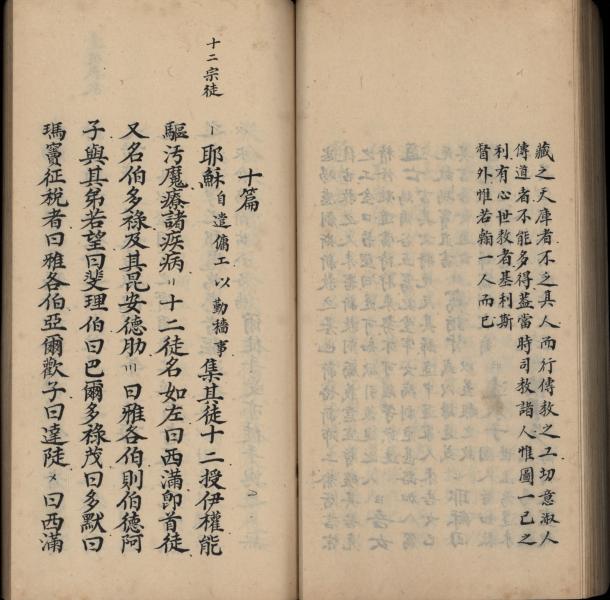 藏之天庫者不乏具人而行傳教之工切意淑人
傳道者不能多得葢當時司教諸人惟圖一己之
利有心世教者基利斯
督外惟若翰一人而已
十二宗徒
十篇
耶穌自遣傭工以勤穡事集其徒十二授伊權能
驅汚魔療諸疾病〢十二徒名如左曰西滿卽首徒
又名伯多祿及其昆安德肋〣曰雅各伯則伯德阿
子與其弟若望曰斐理伯曰巴爾多祿茂曰多默曰
瑪竇征稅者曰雅各伯亞爾歡子曰達陡〤曰西滿